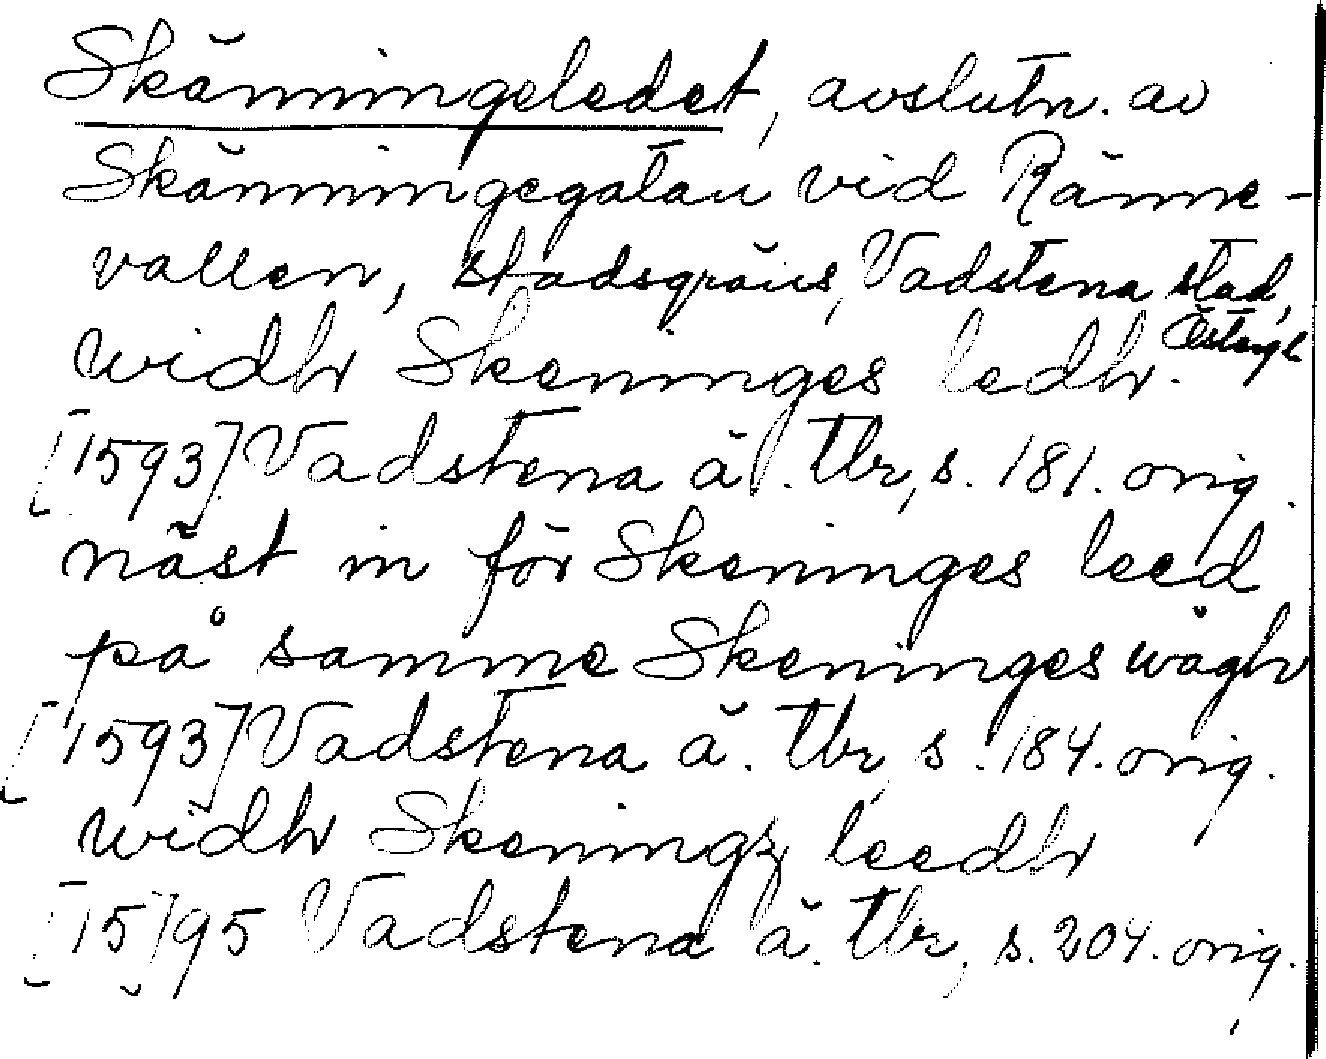 Skänningeledet, avslutn. av
Skänningegatan vid Ränne-
vallen, stadsgräns, Vadstena stad,
Östergl
widh Skeninges ledh.
[1593] Vadstena ä. tbr, s. 181. orig.
näst in för Skeninges leed
på samme Skeninges wägh
[1593] Vadstena ä. tbr, s. 184. orig.
widh Skeningz leedh
[15]95 Vadstena ä. tbr, s. 204. orig.